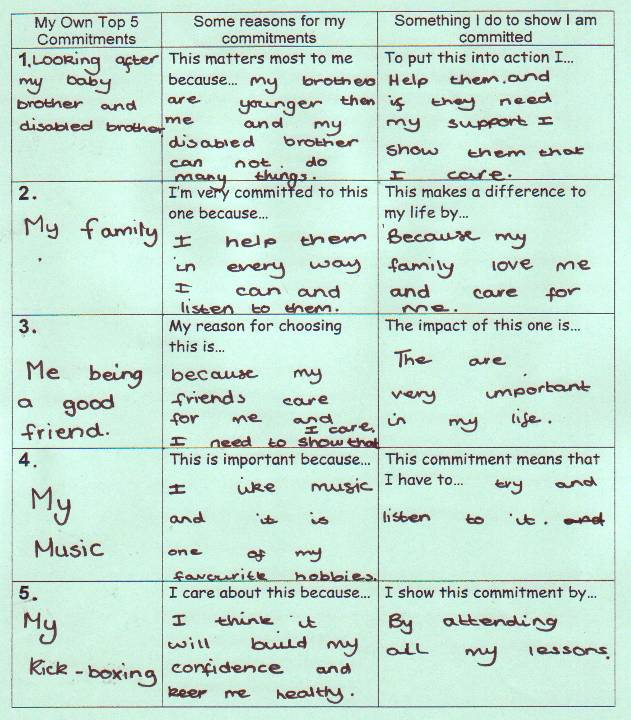 My Own Top 5
Commitments
Some reasons for my
commitments
Something I do to show I am
committed
1. Looking after
my baby
brother and
disabled brother
This matters most to me
because... my brothers
are younger then
me and my
disabled brother
can not do
many things.
To put this into action I...
Help them and
if they need
my support I
show them that
I care.
2.
My family
I'm very committed to this
one because...
I help them
in every way
I can and
listen to them.
This makes a difference to
my life by...
Because my
family love me
and care for
me.
3.
Me being
a good
friend.
My reason for choosing
this is...
because my
friends care
for me and
I care.
I need to show that
The impact of this one is...
The are
very important
in my life.
4.
My
Music
This is important because...
I like music
and it is
one of my
favourite hobbies.
This commitment means that
I have to... try and
listen to it. and
5.
My
Kick-boxing
I care about this because...
I think it
will build my
confidence and
keep me healthy.
I show this commitment by...
By attending
all my lessons.